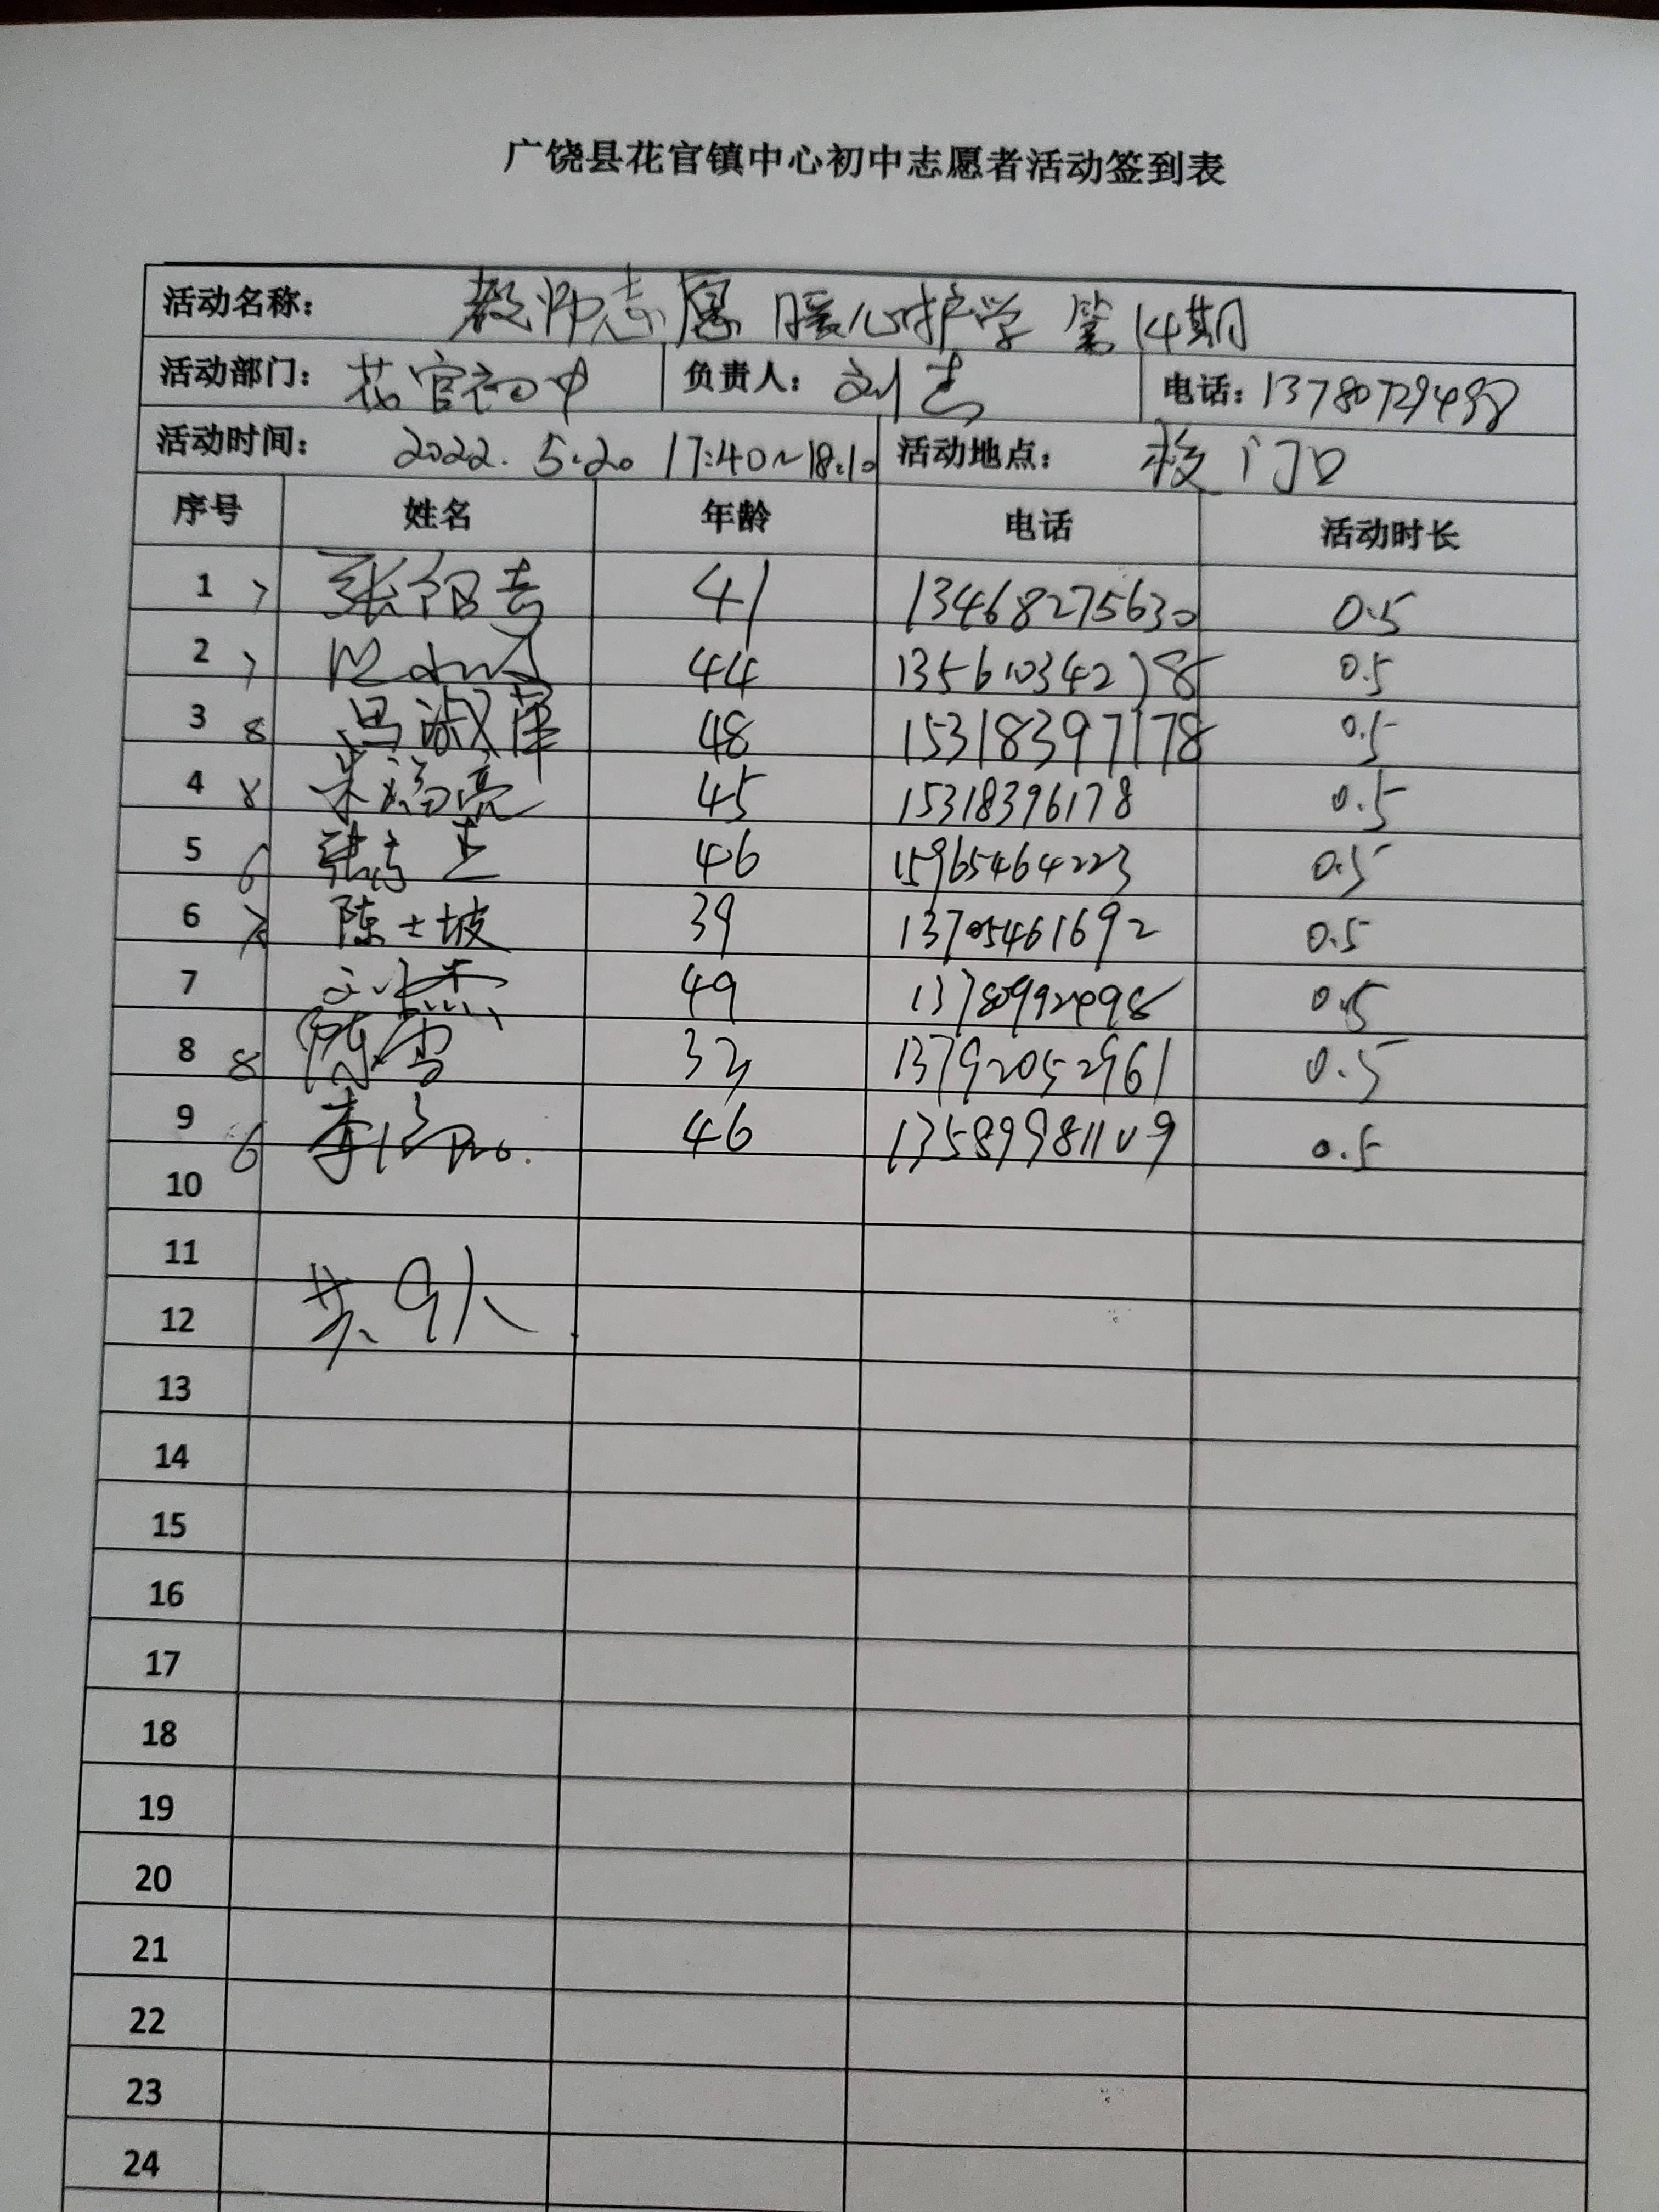 广饶县花官镇中心初中志愿者活动签到表
活动名称: 教师志愿 暖心护学 第14期
活动部门: 花官初中 负责人: 刘杰 电话: 13780729498
活动时间: 2022.5.20 17:40~18:10 活动地点: 校门口
序号 姓名 年龄 电话 活动时长
1 7 张伯吉 41 13468275630 0.5
2 7 44 0.5
3 8 吕淑萍 48 15318397178 0.5
4 8 朱福亮 45 15318396178 0.5
5 6 46 15965464223 0.5
6 7 陈士坡 39 13705461692 0.5
7 刘杰 49 0.5
8 8 陈雪 13792052961 0.5
9 6 46 13589981109 0.5
10
11
12 共9人
13
14
15
16
17
18
19
20
21
22
23
24